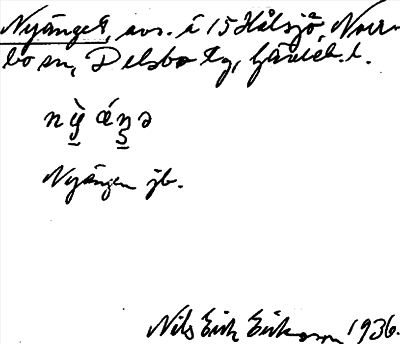 Nyänget, avs. å 15 Hålsjö, Norr-
bo sn, Delsbo tg, Gävleb. l.
Nyängen jb.
Nils Erik Eriksson 1936.